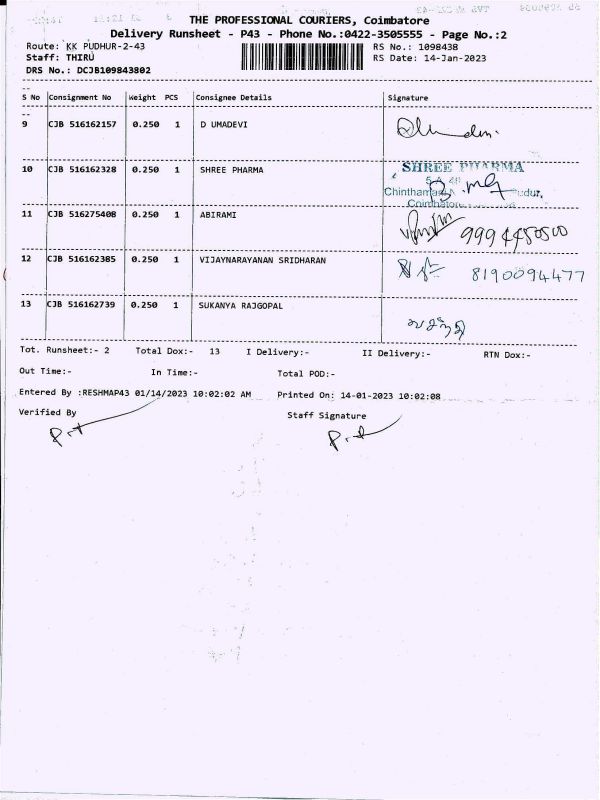 THE PROFESSIONAL COURIERS, Coimbatore
Delivery Runsheet - P43 - Phone No.:0422-3505555 - Page No.:2
Route: KK PUDHUR-2-43 RS No.: 1098438
Staff: THIRU RS Date: 14-Jan-2023
DRS No.: DCJB109843802
S No Consignment No Weight PCS Consignee Details Signature
9 CJB 516162157 0.250 1 D UMADEVI
10 CJB 516162328 0.250 1 SHREE PHARMA SHREE PHARMA
11 CJB 516275408 0.250 1 ABIRAMI 9994450500
12 CJB 516162385 0.250 1 VIJAYNARAYANAN SRIDHARAN 8190094477
13 CJB 516162739 0.250 1 SUKANYA RAJGOPAL
Tot. Runsheet:- 2 Total Dox:- 13 I Delivery:- II Delivery:- RTN Dox:-
Out Time:- In Time:- Total POD:-
Entered By :RESHMAP43 01/14/2023 10:02:02 AM Printed On: 14-01-2023 10:02:08
Verified By Staff Signature